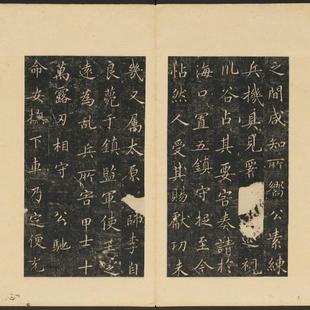 之間咸知所嚮公素練
兵機具見署巡視
川谷占其要害奏請於
海口置五鎮守捉至今
怗然人受其賜獻功未
幾又屬太原帥李自
良薨於鎮監軍使王定
遠為亂兵所害甲士十
萬露刃相守 公馳
命安撫下車乃定便充